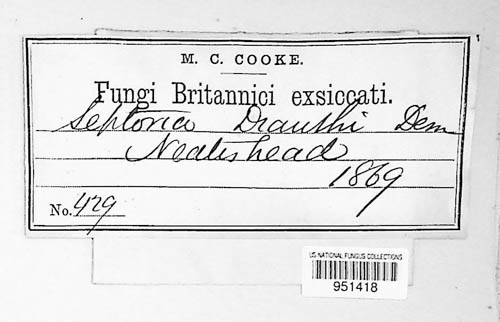 M. C. COOKE.
Fungi Britannici exsiccati.
Septoria Dianthi Desm
Neatishead
1869
No. 429
US NATIONAL FUNGUS COLLECTIONS
951418